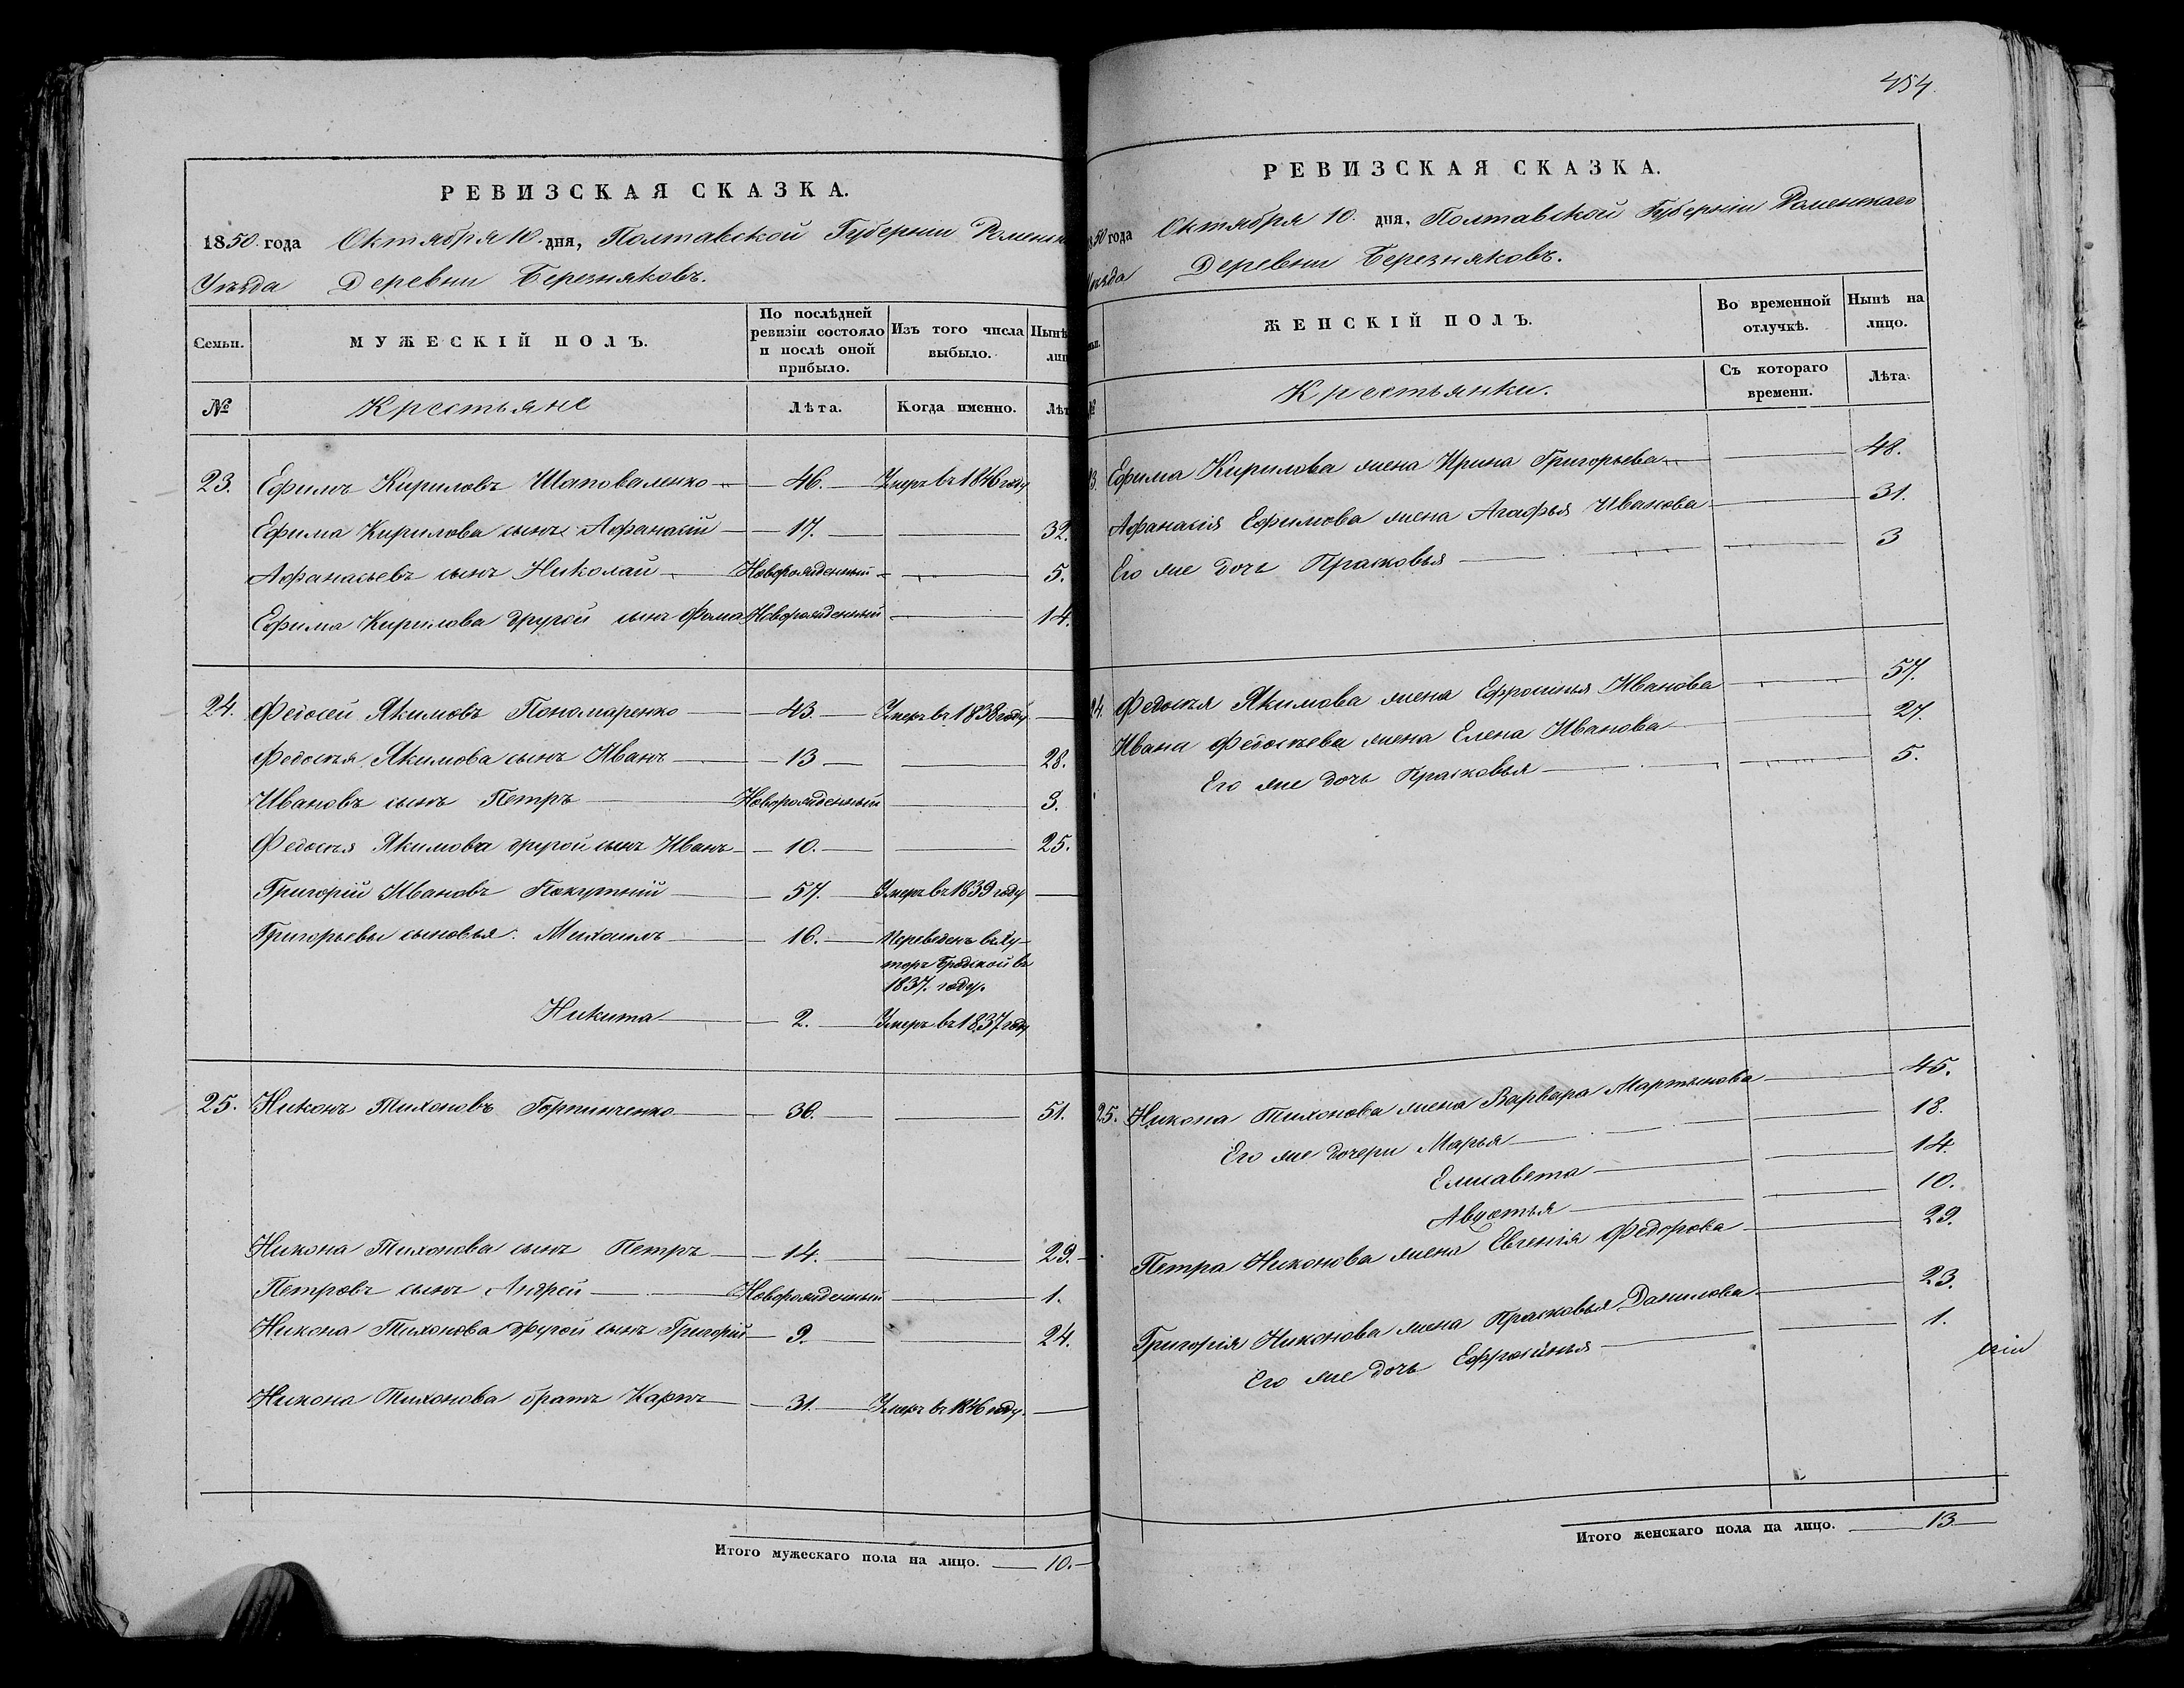 РЕВИЗСКАЯ СКАЗКА.
1850 года Октября 10. дня, Полтавской Губернии
Уезда Деревни Березняковъ.
Семьи.
МУЖЕСКІЙ ПОЛЪ.
По послѣдней ревизіи состояло и послѣ оной прибыло.
Изъ того числа выбыло.
Нынѣ
№ Крестьяне Лѣта. Когда именно.
23. Ефимъ Кириловъ Шаповаленко 46. Умеръ въ 1846 году
Ефима Кирилова сынъ Афанасій 17. 32.
Афанасьевъ сынъ Николай Новорожденный 5.
Ефима Кирилова другой сынъ Фома Новорожденный 14.
24. Федосей Якимовъ Пономаренко 43. Умеръ въ 1838 году
Федосѣя Якимова сынъ Иванъ 13 28.
Ивановъ сынъ Петръ Новорожденный 3.
Федосѣя Якимова другой сынъ Иванъ 10. 25.
Григорій Ивановъ 57. Умеръ въ 1839 году
Григорьевы сыновья: Михаилъ 16. Переведенъ въ ху-
торъ въ
1837. году.
Никита 2. Умеръ въ 1837 году
25. Никонъ Тихоновъ Горпинченко 36. 51.
Никона Тихонова сынъ Петръ 14. 29.
Петровъ сынъ Андрей Новорожденный 1.
Никона Тихонова другой сынъ Григорій 9. 24.
Никона Тихонова братъ Карпъ 31. Умеръ въ 1846 году.
Итого мужескаго пола на лицо. 10.
454.
РЕВИЗСКАЯ СКАЗКА.
года Октября 10. дня, Полтавской Губерніи Роменскаго
Деревни Березняковъ.
ЖЕНСКІЙ ПОЛЪ.
Во временной отлучкѣ.
Нынѣ на лицо.
Крестьянки.
Съ котораго времени.
Лѣта.
Ефима Кирилова жена Ирина Григорьева 48.
Афанасія Ефимова жена Агафья Иванова 31.
Его же дочь Прасковья 3
Федосѣя Якимова жена Ефросинья Иванова 57.
Ивана Федосѣева жена Елена Иванова 27.
Его же дочь Прасковья 5.
25. Никона Тихонова жена Варвара Мартынова 45.
Его же дочери Марья 18.
Елисавета 14.
Авдотья 10.
Петра Никонова жена Евгенія Федорова 29.
Григорія Никонова жена Прасковья Данилова 23.
Его же дочь Ефросинья 1.
Итого женскаго пола на лицо. 13